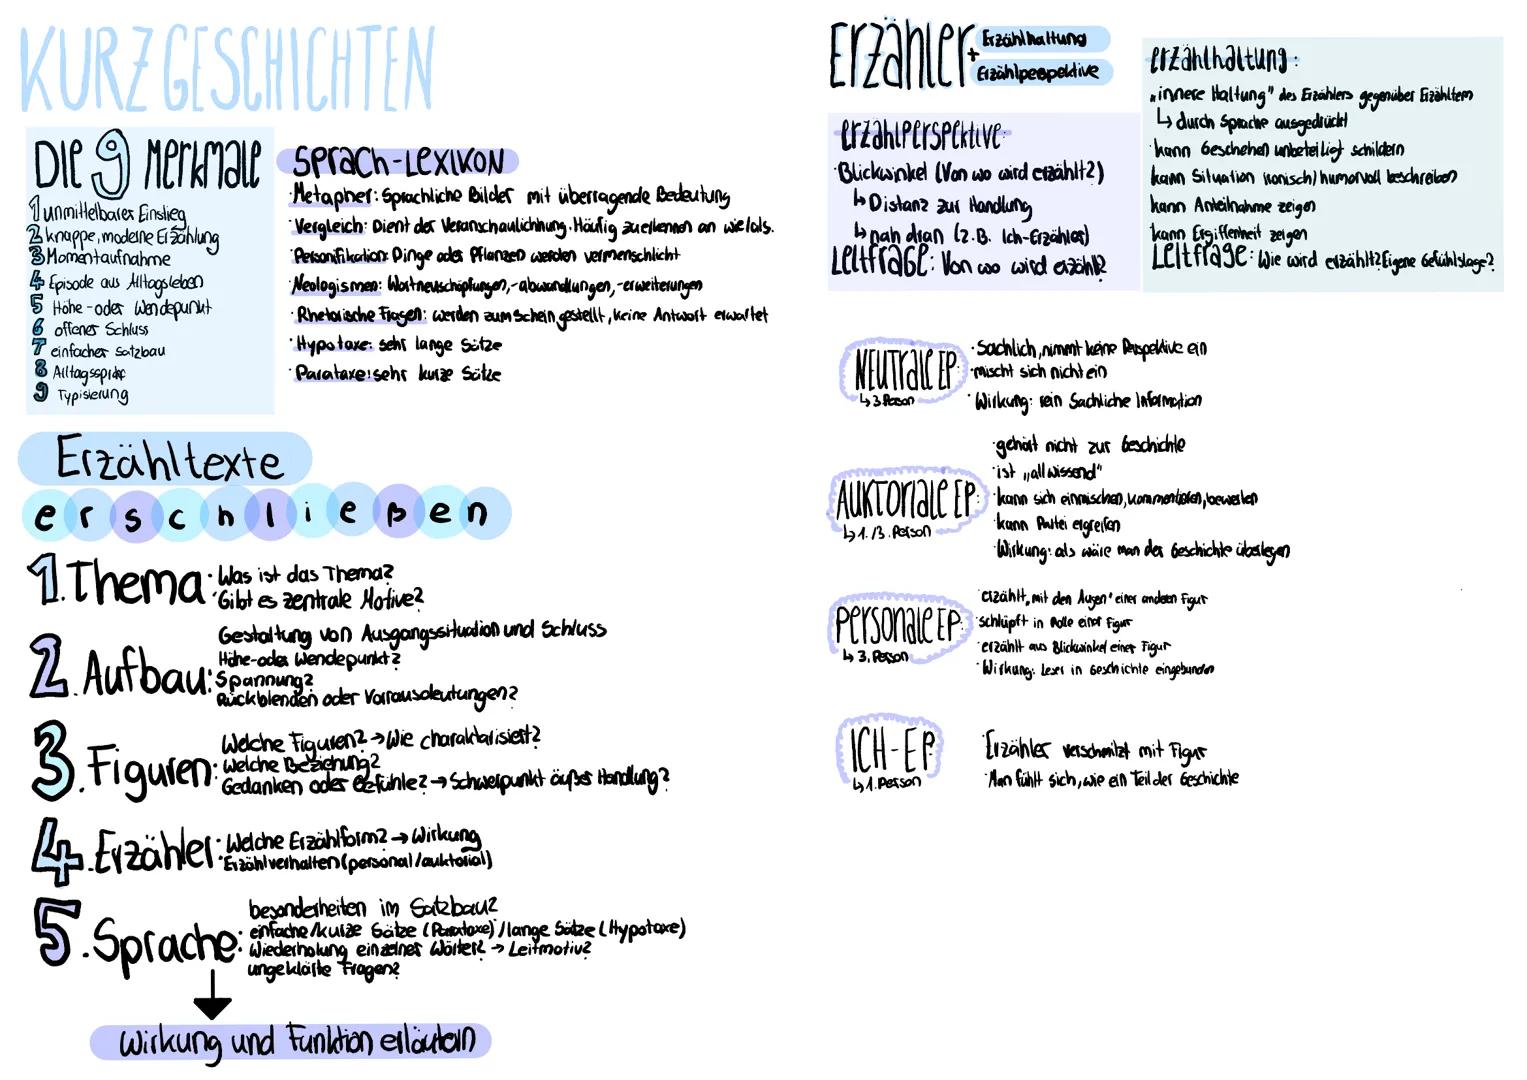 KURZGESCHICHTEN
DIE 9 Merkmale
1 unmittelbarer Einstieg
2 knappe, moderne Erzählung
3 Momentaufnahme
4 Episode aus Alltagsleben
5 Höhe-oder Wendepunkt
6 offener Schluss
7 einfacher Satzbau
8 Alltagssprache
9 Typisierung
Sprach-Lexikon
·Metapher: Sprachliche Bilder mit überragende Bedeutung
·Vergleich: Dient der Veranschaulichung. Häufig zuerkennen an wie/als.
·Personifikation: Dinge oder Pflanzen werden vermenschlicht
·Neologismen: Wortneuschöpfungen,-abwandlungen,-erweiterungen
·Rhetorische Fragen: werden zum Schein gestellt, keine Antwort erwartet
·Hypotaxe: sehr lange Sätze
·Parataxe: sehr kurze Sätze
Erzähltexte
erschließen
1. Thema: ·Was ist das Thema?
·Gibt es zentrale Motive?
2. Aufbau: Gestaltung von Ausgangssituation und Schluss
Höhe-oder Wendepunkt?
Spannung?
Rückblenden oder Vorrausdeutungen?
3. Figuren: Welche Figuren? → Wie charaktarisiert?
Welche Beziehung?
Gedanken oder Gefühle? → Schwerpunkt äußer Handlung?
4. Erzähler: ·Welche Erzählform? → Wirkung
·Erzählverhalten (personal/auktorial)
5. Sprache: besonderheiten im Satzbau?
einfache/kurze Sätze (Parataxe)/lange Sätze (Hypotaxe)
Wiederholung einzelner Wörter? → Leitmotiv?
ungeklärte Fragen?
Wirkung und Funktion erläutern
Erzähler + Erzählhaltung
Erzählperspektive
erzählperspektive:
·Blickwinkel (Von wo wird erzählt?)
↳ Distanz zur Handlung
↳ nah dran (z.B. Ich-Erzähler)
Leitfrage: Von wo wird erzählt?
erzählhaltung:
„innere Haltung" des Erzählers gegenüber Erzähltem
↳ durch Sprache ausgedrückt
·kann Geschehen unbeteiligt schildern
·kann Situation ironisch/humorvoll beschreiben
kann Anteilnahme zeigen
kann Ergiffenheit zeigen
Leitfrage: Wie wird erzählt? Eigene Gefühlslage?
Neutrale EP:
↳ 3. Person
·Sachlich, nimmt keine Perspektive ein
·mischt sich nicht ein
·Wirkung: rein Sachliche Information
Auktoriale EP:
↳ 1./3. Person
·gehört nicht zur Geschichte
·ist „allwissend"
·kann sich einmischen, kommentieren, bewerten
·kann Partei ergreifen
·Wirkung: als wäre man der Geschichte überlegen
Personale EP:
↳ 3. Person
·erzählt „mit den Augen" einer anderen Figur
·schlüpft in Rolle einer Figur
·erzählt aus Blickwinkel einer Figur
·Wirkung: Leser in Geschichte eingebunden
ICH-EP
↳ 1. Person
·Erzähler verschmilzt mit Figur
·Man fühlt sich, wie ein Teil der Geschichte